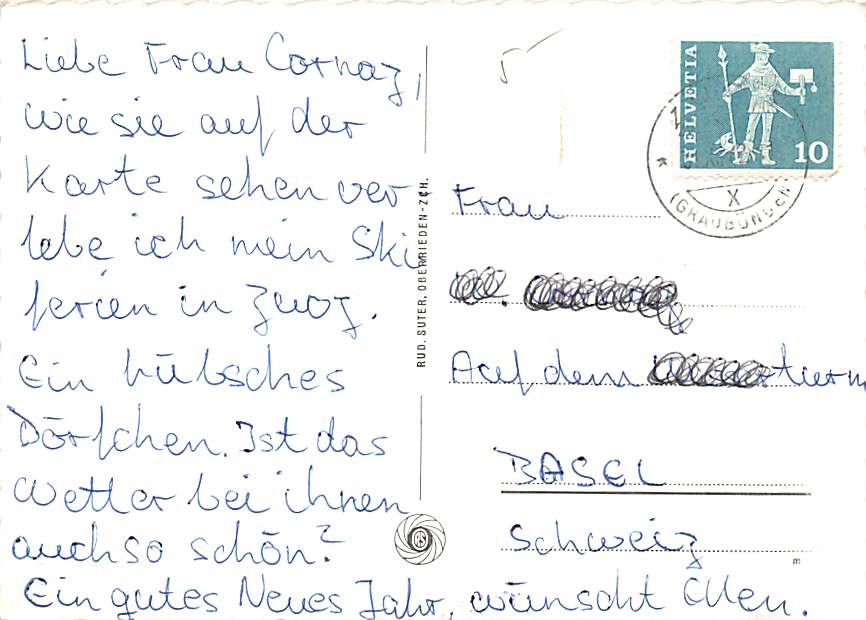 Liebe Frau Cornaz,
wie sie auf der
Karte sehen ver
lebe ich mein Ski
ferien in Zuoz.
Ein hübsches
Dörfchen. Ist das
Wetter bei ihnen
auch so schön?
Ein gutes Neues Jahr, wünscht Ellen.
RUD. SUTER, OBERRIEDEN-ZCH.
HELVETIA
10
X
(GRAUBÜNDEN)
Frau
Auf dem
BASEL
Schweiz
m